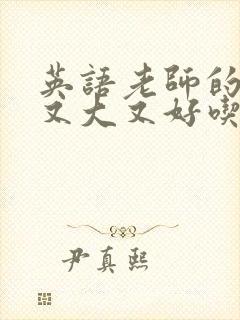 英語老師的
又大又好喫
尹真熙